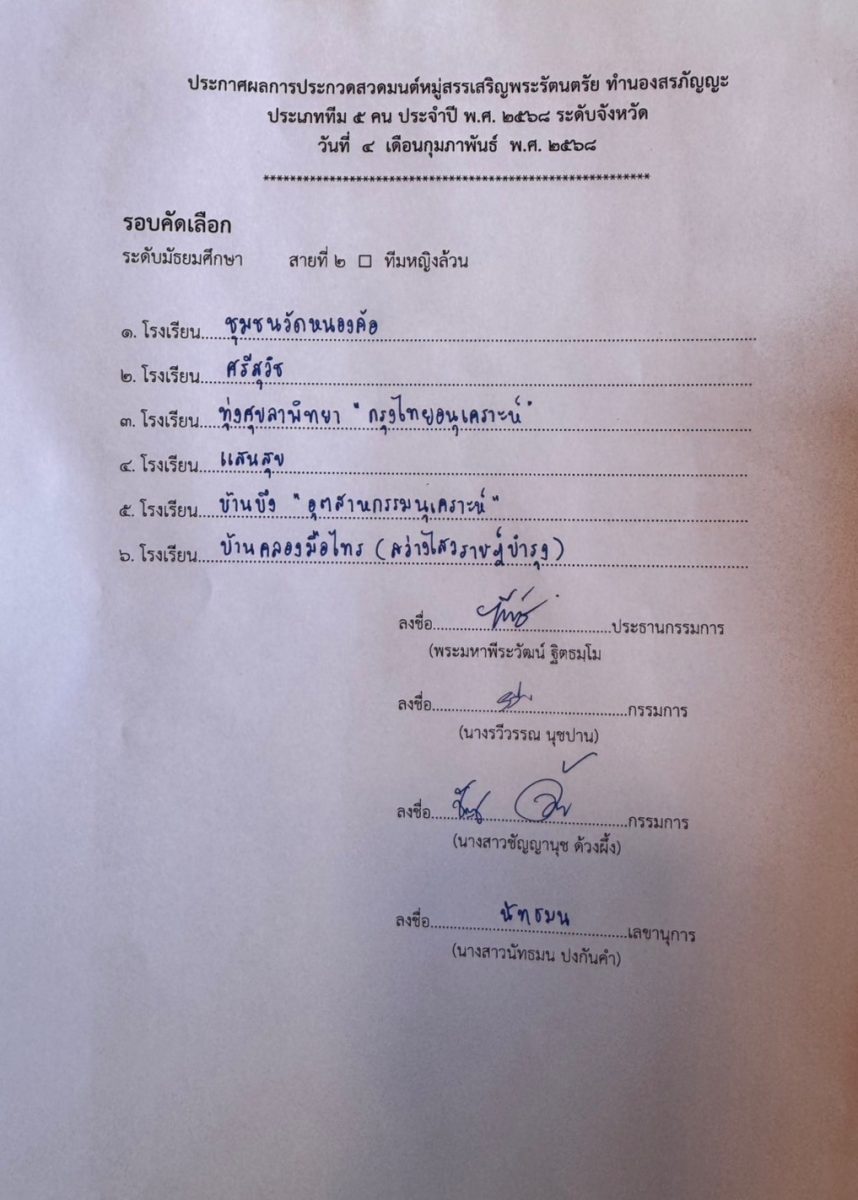 ประกาศผลการประกวดสวดมนต์หมู่สรรเสริญพระรัตนตรัย ทำนองสรภัญญะ
ประเภททีม ๕ คน ประจำปี พ.ศ. ๒๕๖๘ ระดับจังหวัด
วันที่ ๔ เดือนกุมภาพันธ์ พ.ศ. ๒๕๖๘
************************************************************
รอบคัดเลือก
ระดับมัธยมศึกษา สายที่ ๒ ☐ ทีมหญิงล้วน
๑. โรงเรียน ชุมชนวัดหนองค้อ
๒. โรงเรียน ศรีสุวิช
๓. โรงเรียน ทุ่งศุขลาพิทยา "กรุงไทยอนุเคราะห์"
๔. โรงเรียน แสนสุข
๕. โรงเรียน บ้านบึง "อุตสาหกรรมนุเคราะห์"
๖. โรงเรียน บ้านคลองมือไทร (สว่างไสวราษฎร์บำรุง)
ลงชื่อ ประธานกรรมการ
(พระมหาพีระวัฒน์ ฐิตธมฺโม
ลงชื่อ กรรมการ
(นางรวีวรรณ นุชปาน)
ลงชื่อ กรรมการ
(นางสาวชัญญานุช ด้วงผึ้ง)
ลงชื่อ นัทธมน เลขานุการ
(นางสาวนัทธมน ปงกันคำ)